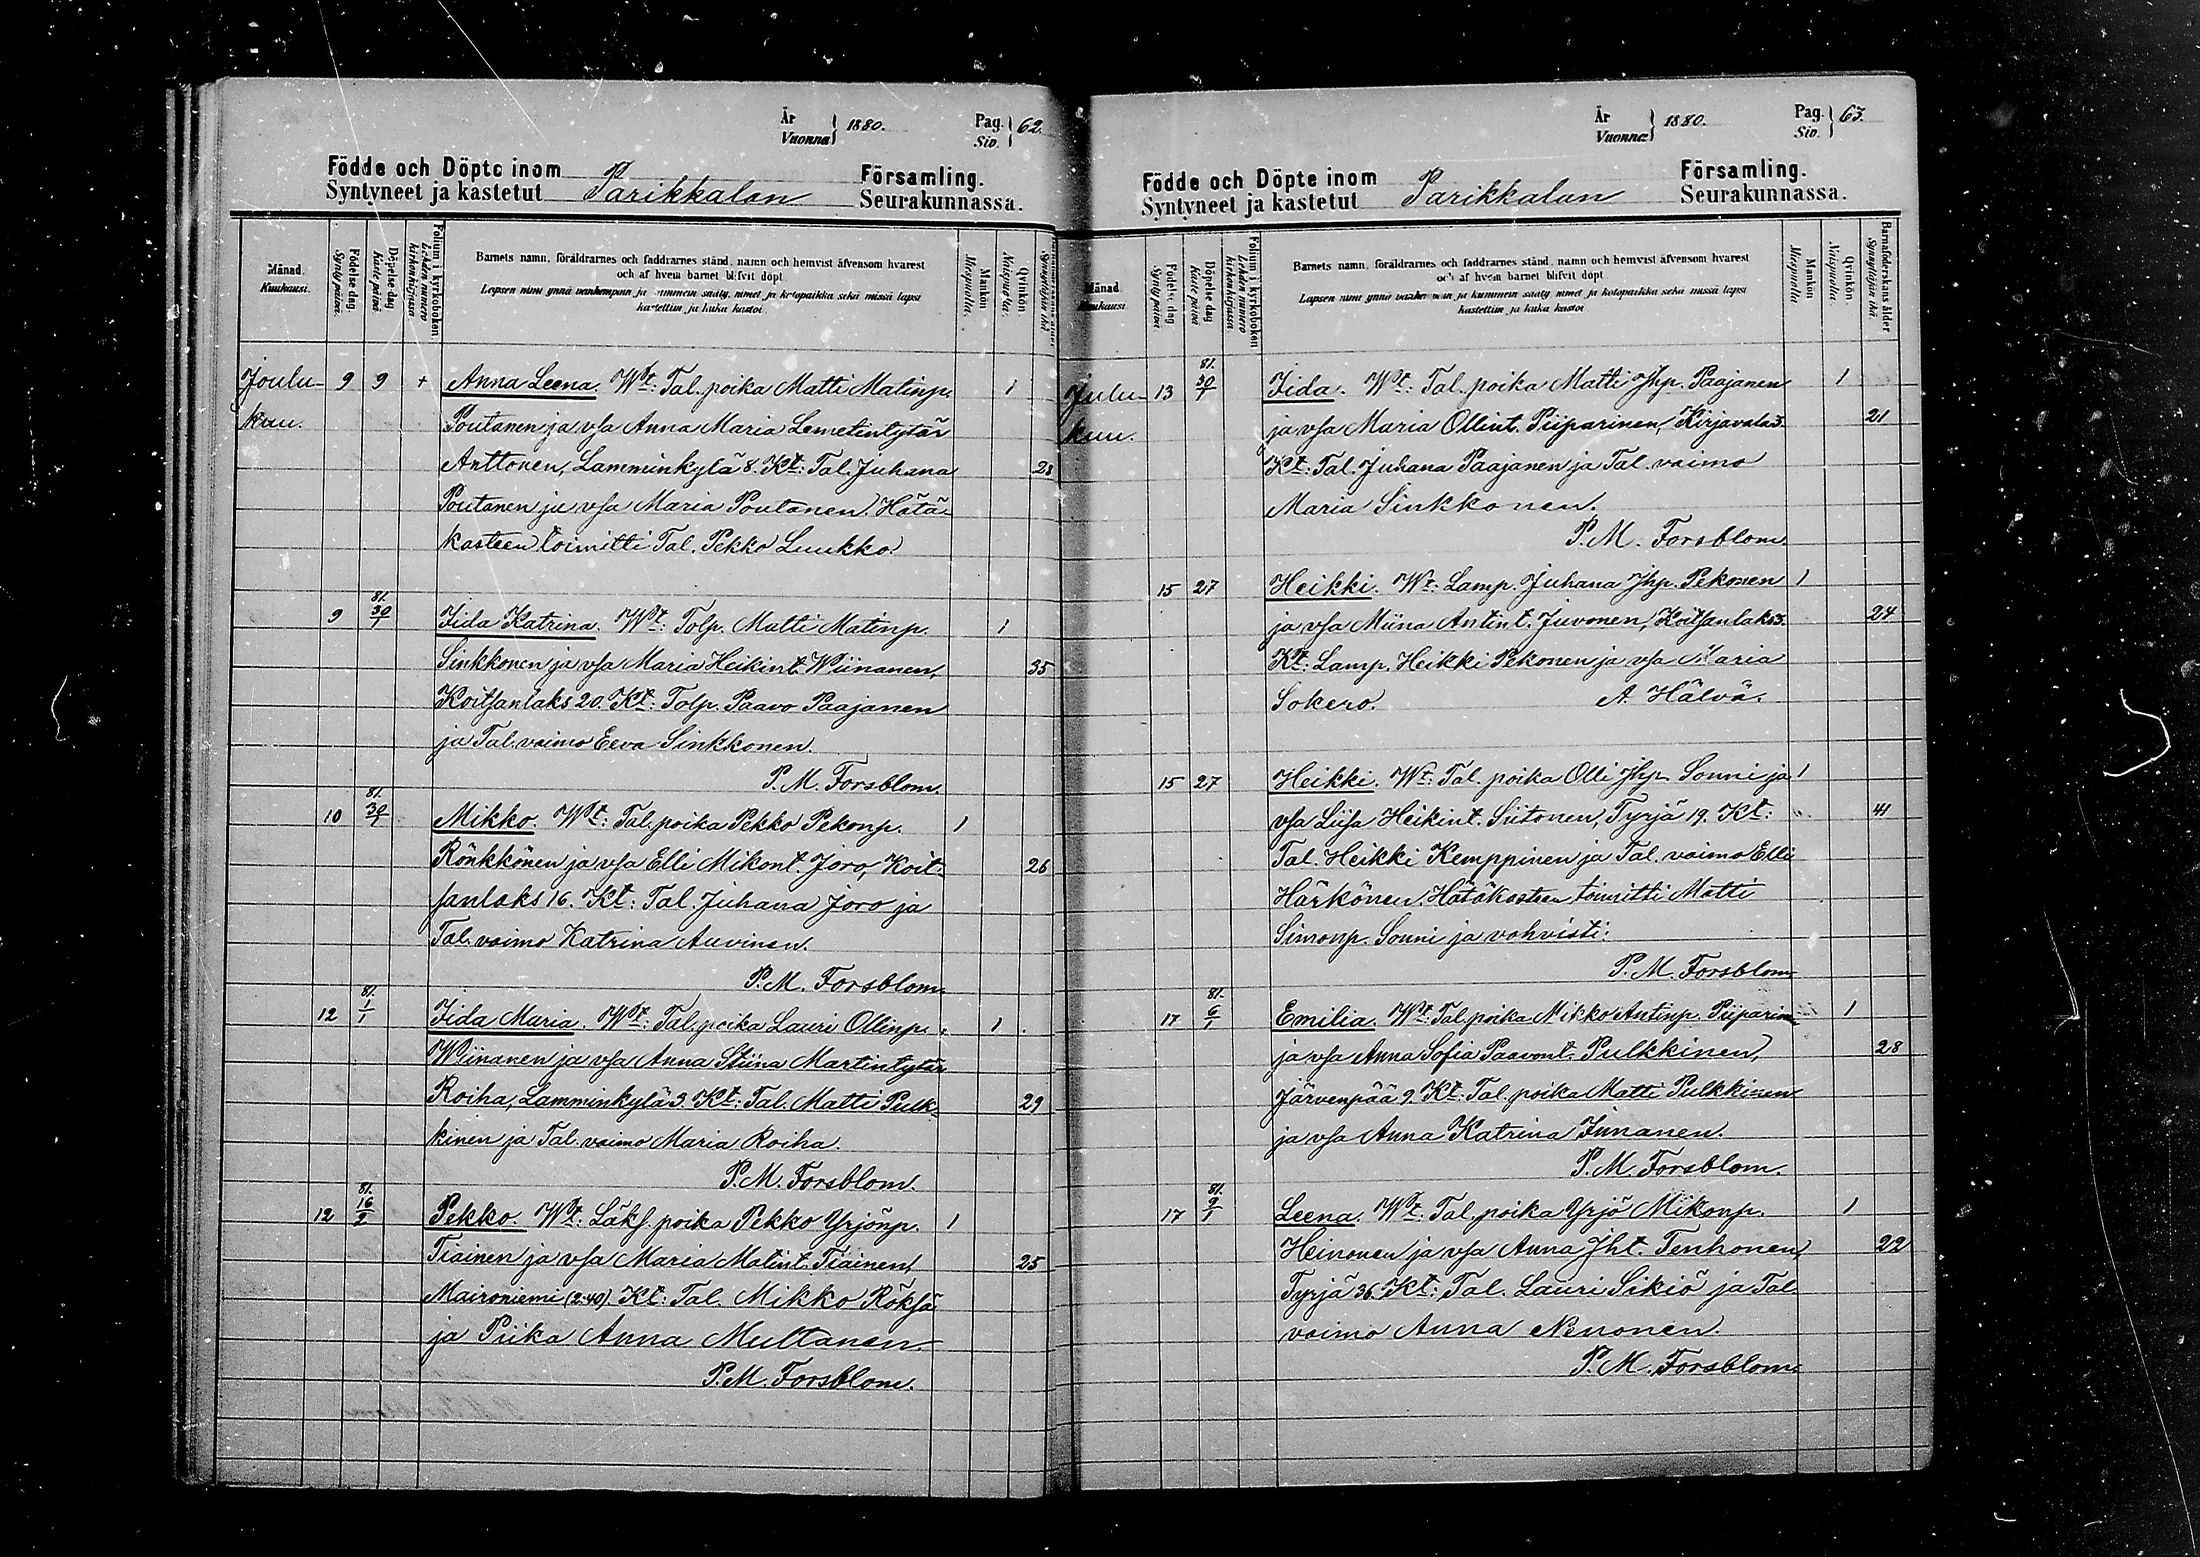 År
Vuonna } 1880.
Pag.
Siv. } 62.
Födde och Döpte inom
Syntyneet ja kastetut Parikkalan
Församling.
Seurakunnassa.
Månad.
Kuukausi.
Födelse dag.
Synty päivä.
Döpelse dag
Kaste päivä
Folium i kyrkoboken
Lehden numero
kirkonkirjassa
Barnets namn, föräldrarnes och faddrarnes stånd, namn och hemvist äfvensom hvarest
och af hvem barnet blifvit döpt.
Lapsen nimi ynnä vanhempain ja kummein sääty, nimet ja kotopaikka sekä missä lapsi
kastettiin ja kuka kastoi
Mankön
Miespuolta.
Qvinkön
Naispuolta.
Joulu- 9 9 + Anna Leena. Wt: Tal. poika Matti Matinp. 1
kuu. Poutanen ja vsa Anna Maria Lemetintytär
Anttonen, Lamminkylä 8. Kt: Tal. Juhana 28
Poutanen ja vsa Maria Poutanen. Hätä-
kasteen toimitti Tal. Pekko Luukko.
9 81. 30/1 Iida Katrina. Wt: Tolp. Matti Matinp. 1
Sinkkonen ja vsa Maria Heikint. Wiinanen, 35
Koitsanlaks 20. Kt: Tolp. Paavo Paajanen
ja Tal. vaimo Eeva Sinkkonen.
P. M. Forsblom.
10 81. 30/1 Mikko. Wt: Tal. poika Pekko Pekonp. 1
Rönkkönen ja vsa Elli Mikont. Joro, Koit- 26
sanlaks 16. Kt: Tal. Juhana Joro ja
Tal. vaimo Katrina Auvinen.
P. M. Forsblom.
12 81. 1/1 Iida Maria. Wt: Tal. poika Lauri Ollinp. 1
Wiinanen ja vsa Anna Stiina Martintytär
Roiha, Lamminkylä 3. Kt: Tal. Matti Pulk- 29
kinen ja Tal. vaimo Maria Roiha.
P. M. Forsblom.
12 81. 16/2 Pekko. Wt: Läks. poika Pekko Yrjönp. 1
Tiainen ja vsa Maria Matint. Tiainen, 25
Maironiemi (2.40). Kt: Tal. Mikko Röksä
ja Piika Anna Multanen.
P. M. Forsblom.
År
Vuonna } 1880.
Pag.
Siv. } 63.
Födde och Döpte inom
Syntyneet ja kastetut Parikkalan
Församling.
Seurakunnassa.
Månad.
Kuukausi
Födelse dag
Synty päivä
Döpelse dag
Kaste päivä
Folium i kyrkoboken
Lehden numero
kirkonkirjassa
Barnets namn, föräldrarnes och faddrarnes stånd, namn och hemvist äfvensom hvarest
och af hvem barnet blifvit döpt.
Lapsen nimi ynnä vanhempain ja kummein sääty nimet ja kotopaikka sekä missä lapsi
kastettiin ja kuka kastoi
Mankön
Miespuolta
Qvinkön.
Naispuolta.
Barnaföderskans ålder
Synnyttäjän ikä.
Julu- 13 81. 30/1 Iida. Wt: Tal. poika Matti Jhp. Paajanen 1
kuu. ja vsa Maria Ollint. Piiparinen, Kirjavala 3. 21
Kt: Tal. Juhana Paajanen ja Tal. vaimo
Maria Sinkkonen.
P. M. Forsblom.
15 27 Heikki. Wt: Lamp. Juhana Jhp. Pekonen 1
ja vsa Miina Antint. Juvonen, Koitsanlaks 3. 24
Kt: Lamp. Heikki Pekonen ja vsa Maria
Sokero. A. Hälvä.
15 27 Heikki. Wt: Tal. poika Olli Jhp. Sonni ja 1
vsa Liisa Heikint. Siitonen, Tyrjä 19. Kt: 41
Tal. Heikki Kemppinen ja Tal. vaimo Elli
Härkönen. Hätäkasteen toimitti Matti
Simonp. Sonni ja vahvisti:
P. M. Forsblom.
17 81. 6/1 Emilia. Wt: Tal. poika Mikko Antinp. Piiparinen 1
ja vsa Anna Sofia Paavont. Pulkkinen, 28
Järvenpää 9. Kt: Tal. poika Matti Pulkkinen
ja vsa Anna Katrina Innanen.
P. M. Forsblom.
17 81. 9/1 Leena. Wt: Tal. poika Yrjö Mikonp. 1
Heinonen ja vsa Anna Jht. Tenhonen, 22
Tyrjä 36. Kt: Tal. Lauri Sikiö ja Tal.
vaimo Anna Nenonen.
P. M. Forsblom.